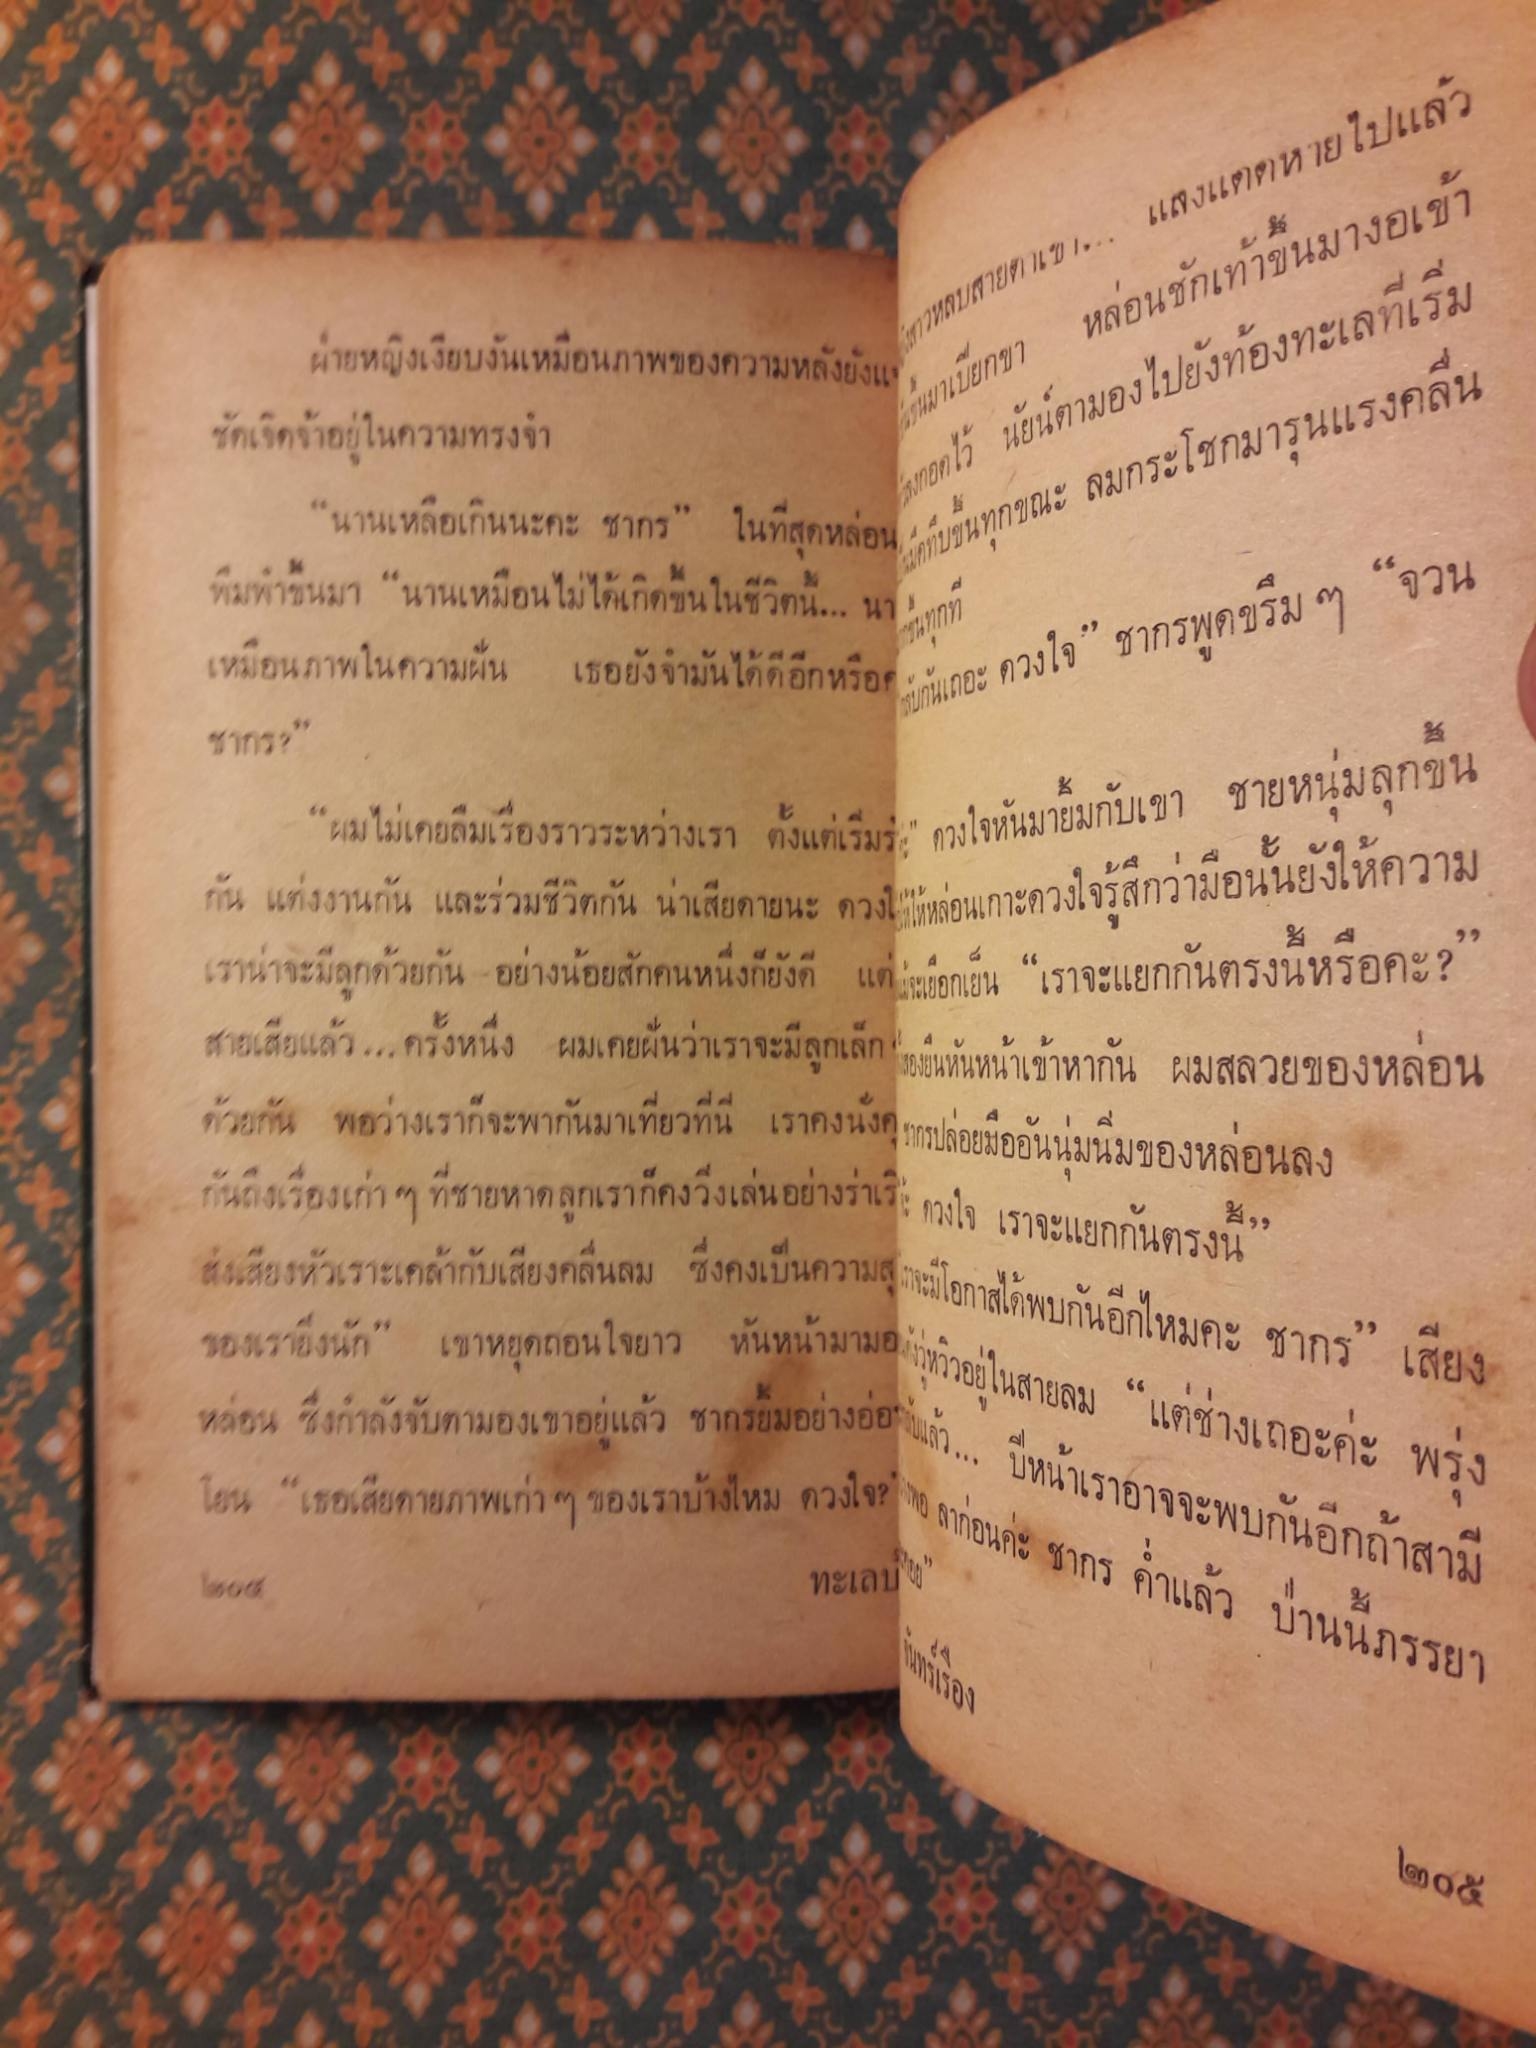 ฝ่ายหญิงเงียบงันเหมือนภาพของความหลังยัง
ชัดเจิดจ้าอยู่ในความทรงจำ
“นานเหลือเกินนะคะ ชากร” ในที่สุดหล่อน
พึมพำขึ้นมา “นานเหมือนไม่ได้เกิดขึ้นในชีวิตนี้...
เหมือนภาพในความฝัน เธอยังจำมันได้ดีอีกหรือ
ชากร?”
“ผมไม่เคยลืมเรื่องราวระหว่างเรา ตั้งแต่เริ่ม
กัน แต่งงานกัน และร่วมชีวิตกัน น่าเสียดายนะ
เราน่าจะมีลูกด้วยกัน อย่างน้อยสักคนหนึ่งก็ยังดี แต่
สายเสียแล้ว...ครั้งหนึ่ง ผมเคยฝันว่าเราจะมีลูกเล็ก
ด้วยกัน พอว่างเราก็จะพากันมาเที่ยวที่นี่ เราคงนั่ง
กันถึงเรื่องเก่าๆ ที่ชายหาดลูกเราก็คงวิ่งเล่นอย่าง
ส่งเสียงหัวเราะเคล้ากับเสียงคลื่นลม ซึ่งคงเป็นความ
ของเรายิ่งนัก” เขาหยุดถอนใจยาว หันหน้ามา
หล่อน ซึ่งกำลังจับตามองเขาอยู่แล้ว ชากรยิ้มอย่าง
โยน “เธอเสียดายภาพเก่าๆ ของเราบ้างไหม ดวงใจ?
แสงแดดหายไปแล้ว
ขึ้นมาเปียกขา หล่อนชักเท้าขึ้นมางอเข้า
กอดไว้ นัยน์ตามองไปยังท้องทะเลที่เริ่ม
มืดทึบขึ้นทุกขณะ ลมกระโชกมารุนแรงคลื่น
ขึ้นทุกที
กลับกันเถอะ ดวงใจ” ชากรพูดขรึมๆ “จวน
ดวงใจหันมายิ้มกับเขา ชายหนุ่มลุกขึ้น
ให้หล่อนเกาะดวงใจรู้สึกว่ามือนั้นยังให้ความ
จะเยือกเย็น “เราจะแยกกันตรงนี้หรือคะ?”
ยืนหันหน้าเข้าหากัน ผมสลวยของหล่อน
ชากรปล่อยมืออันนุ่มนิ่มของหล่อนลง
ดวงใจ เราจะแยกกันตรงนี้”
เราจะมีโอกาสได้พบกันอีกไหมคะ ชากร” เสียง
วู่หวิวอยู่ในสายลม “แต่ช่างเถอะค่ะ พรุ่ง
กลับแล้ว... ปีหน้าเราอาจจะพบกันอีกถ้าสามี
ลาก่อนค่ะ ชากร ค่ำแล้ว ป่านนี้ภรรยา
คอย”
จันทร์เรือง
๒๐๕